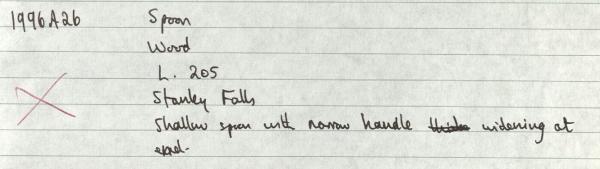 1996A26 Spoon
Wood
L. 205
Stanley Falls
Shallow spoon with narrow handle widening at
end.